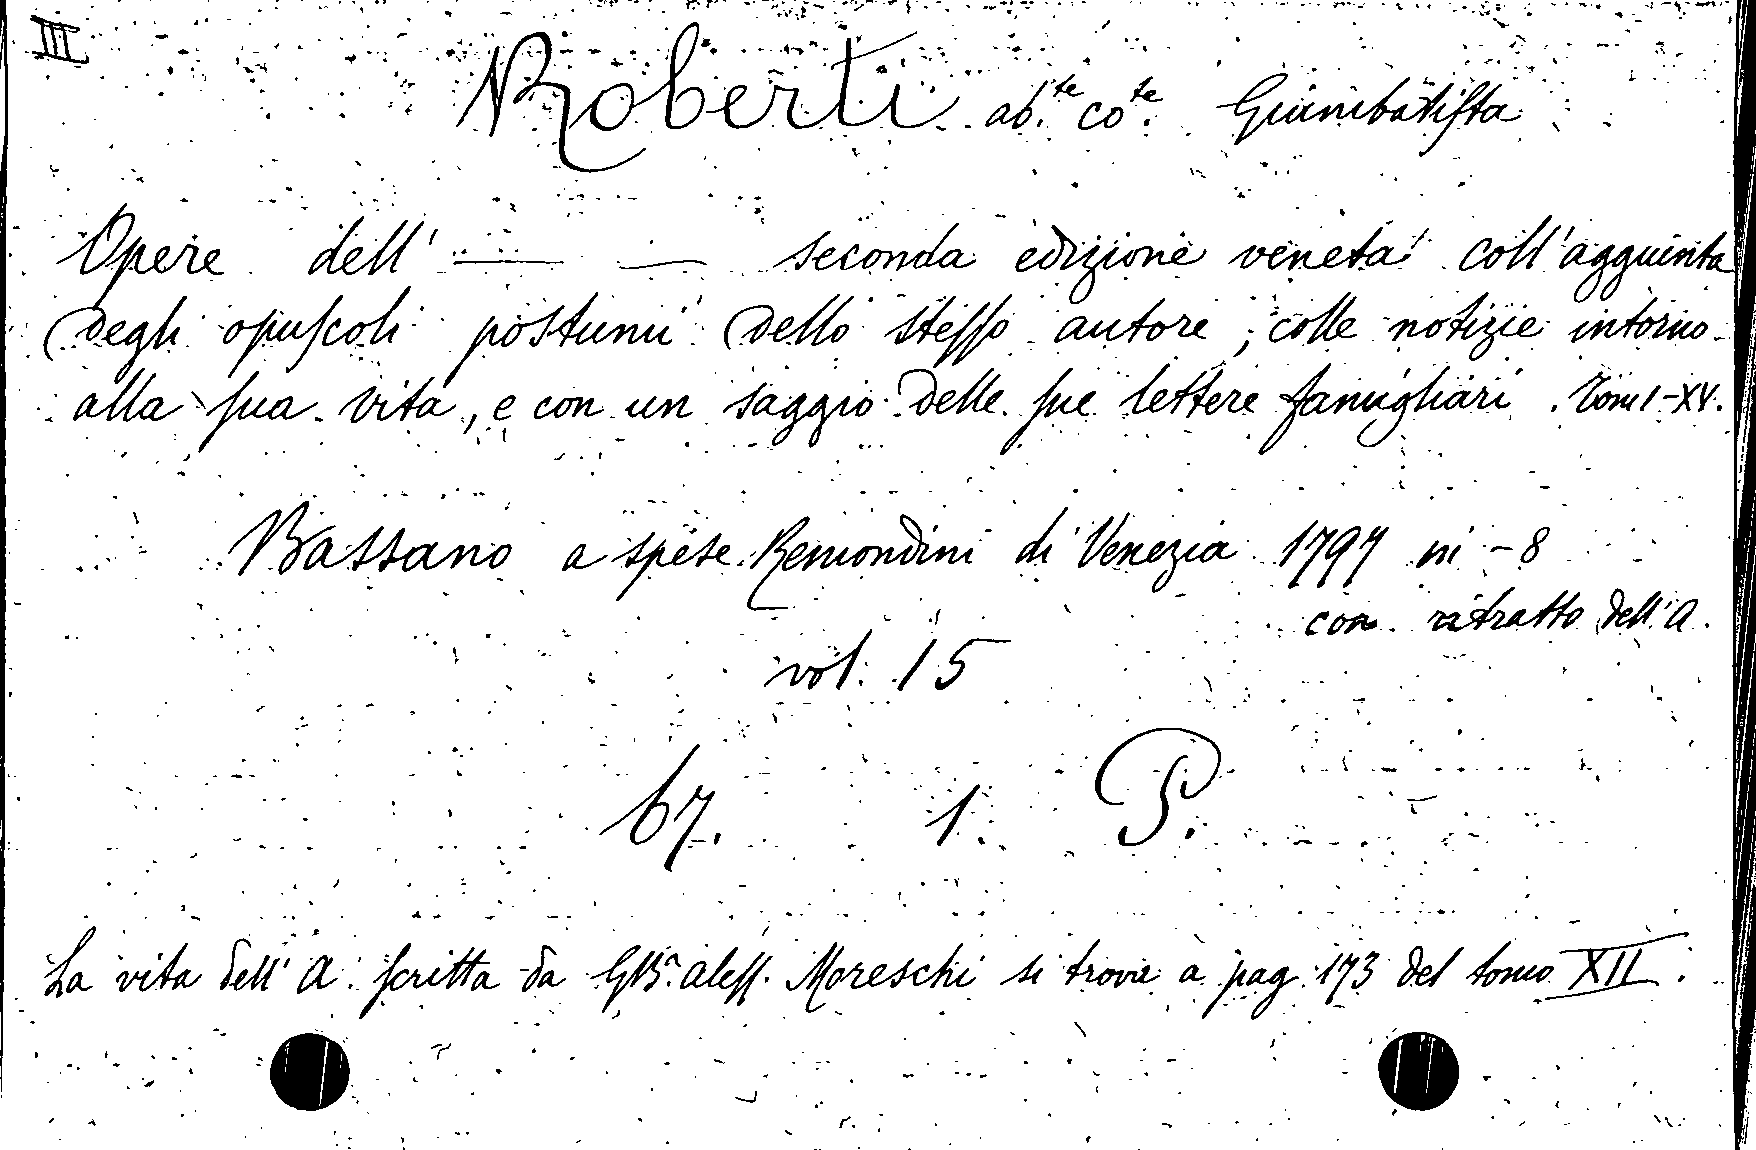 III
Roberti ab.te co.te Giambatista
Opere dell' — — seconda edizione veneta coll'aggiunta
degli opuscoli postumi dello stesso autore, colle notizie intorno
alla sua vita, e con un saggio delle sue lettere famigliari. Tomi I-XV.
Bassano a spese Remondini di Venezia 1797 in-8
con ritratto dell'A.
vol. 15
67. 1. P.
La vita dell'A. scritta da GBa. Aless. Moreschi si trova a pag. 173 del tomo XII.